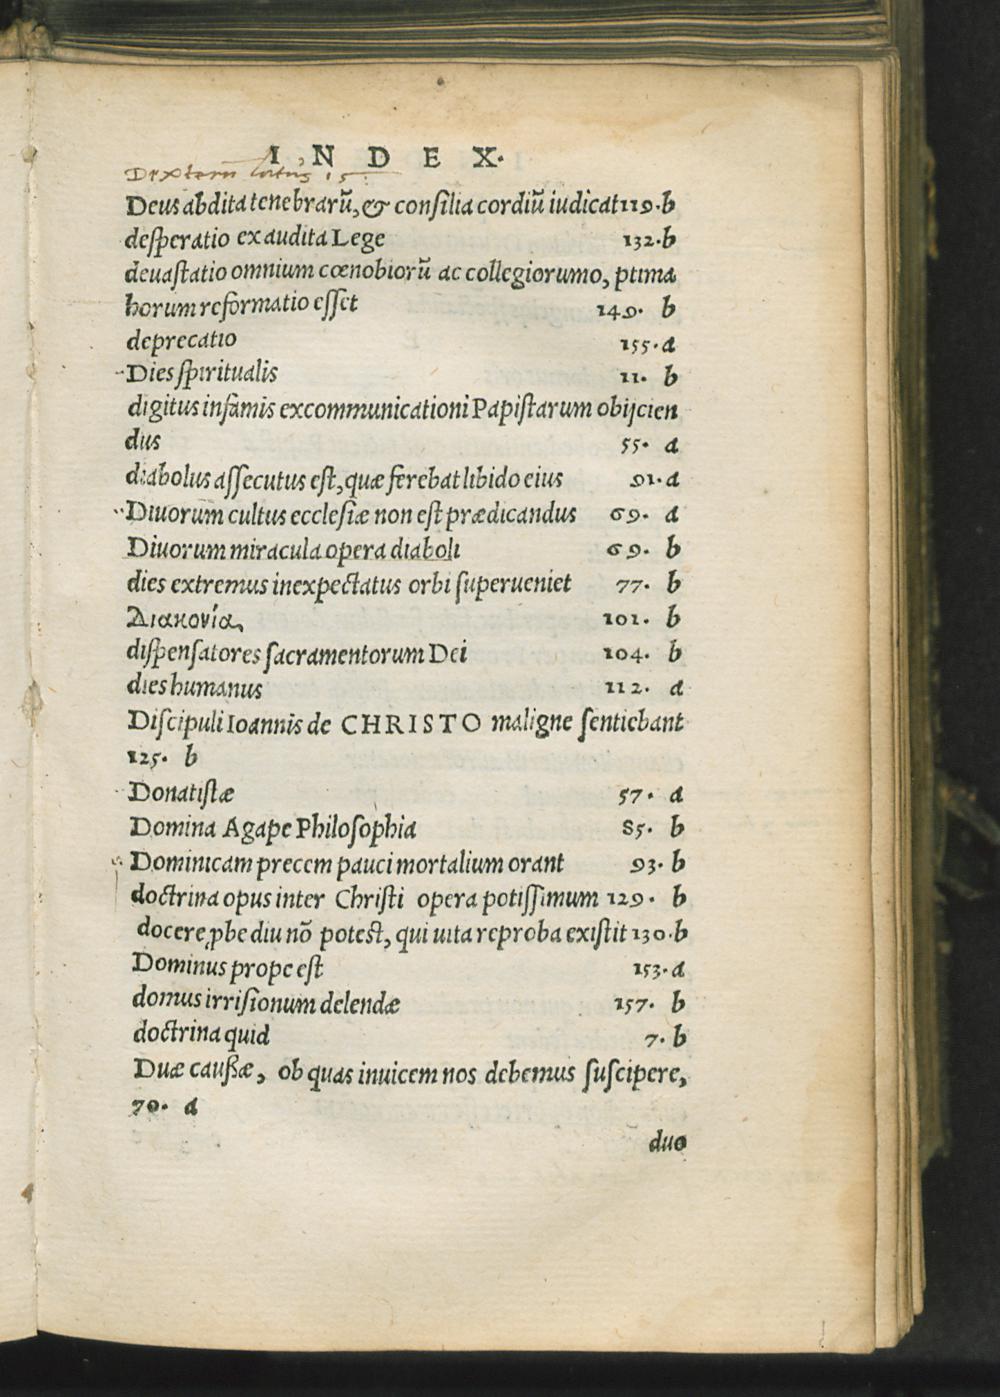 I N D E X.
Dexterū latus 15.
Deus abdita tenebrarū, & consilia cordiū iudicat 119. b
desperatio ex audita Lege 132. b
deuastatio omnium cœnobiorū ac collegiorumo, ptima
horum reformatio esset 149. b
deprecatio 155. a
Dies spiritualis 11. b
digitus infamis excommunicationi Papistarum obijcien
dus 55. a
diabolus assecutus est, quæ ferebat libido eius 91. a
Diuorum cultus ecclesiæ non est prædicandus 69. a
Diuorum miracula opera diaboli 69. b
dies extremus inexpectatus orbi superueniet 77. b
Διακονία, 101. b
dispensatores sacramentorum Dei 104. b
dies humanus 112. a
Discipuli Ioannis de CHRISTO maligne sentiebant
125. b
Donatistæ 57. a
Domina Agape Philosophia 85. b
Dominicam precem pauci mortalium orant 93. b
doctrina opus inter Christi opera potissimum 129. b
docere ꝓbe diu nō potest, qui uita reproba existit 130. b
Dominus prope est 153. a
domus irrisionum delendæ 157. b
doctrina quid 7. b
Duæ caußæ, ob quas inuicem nos debemus suscipere,
70. a
duo